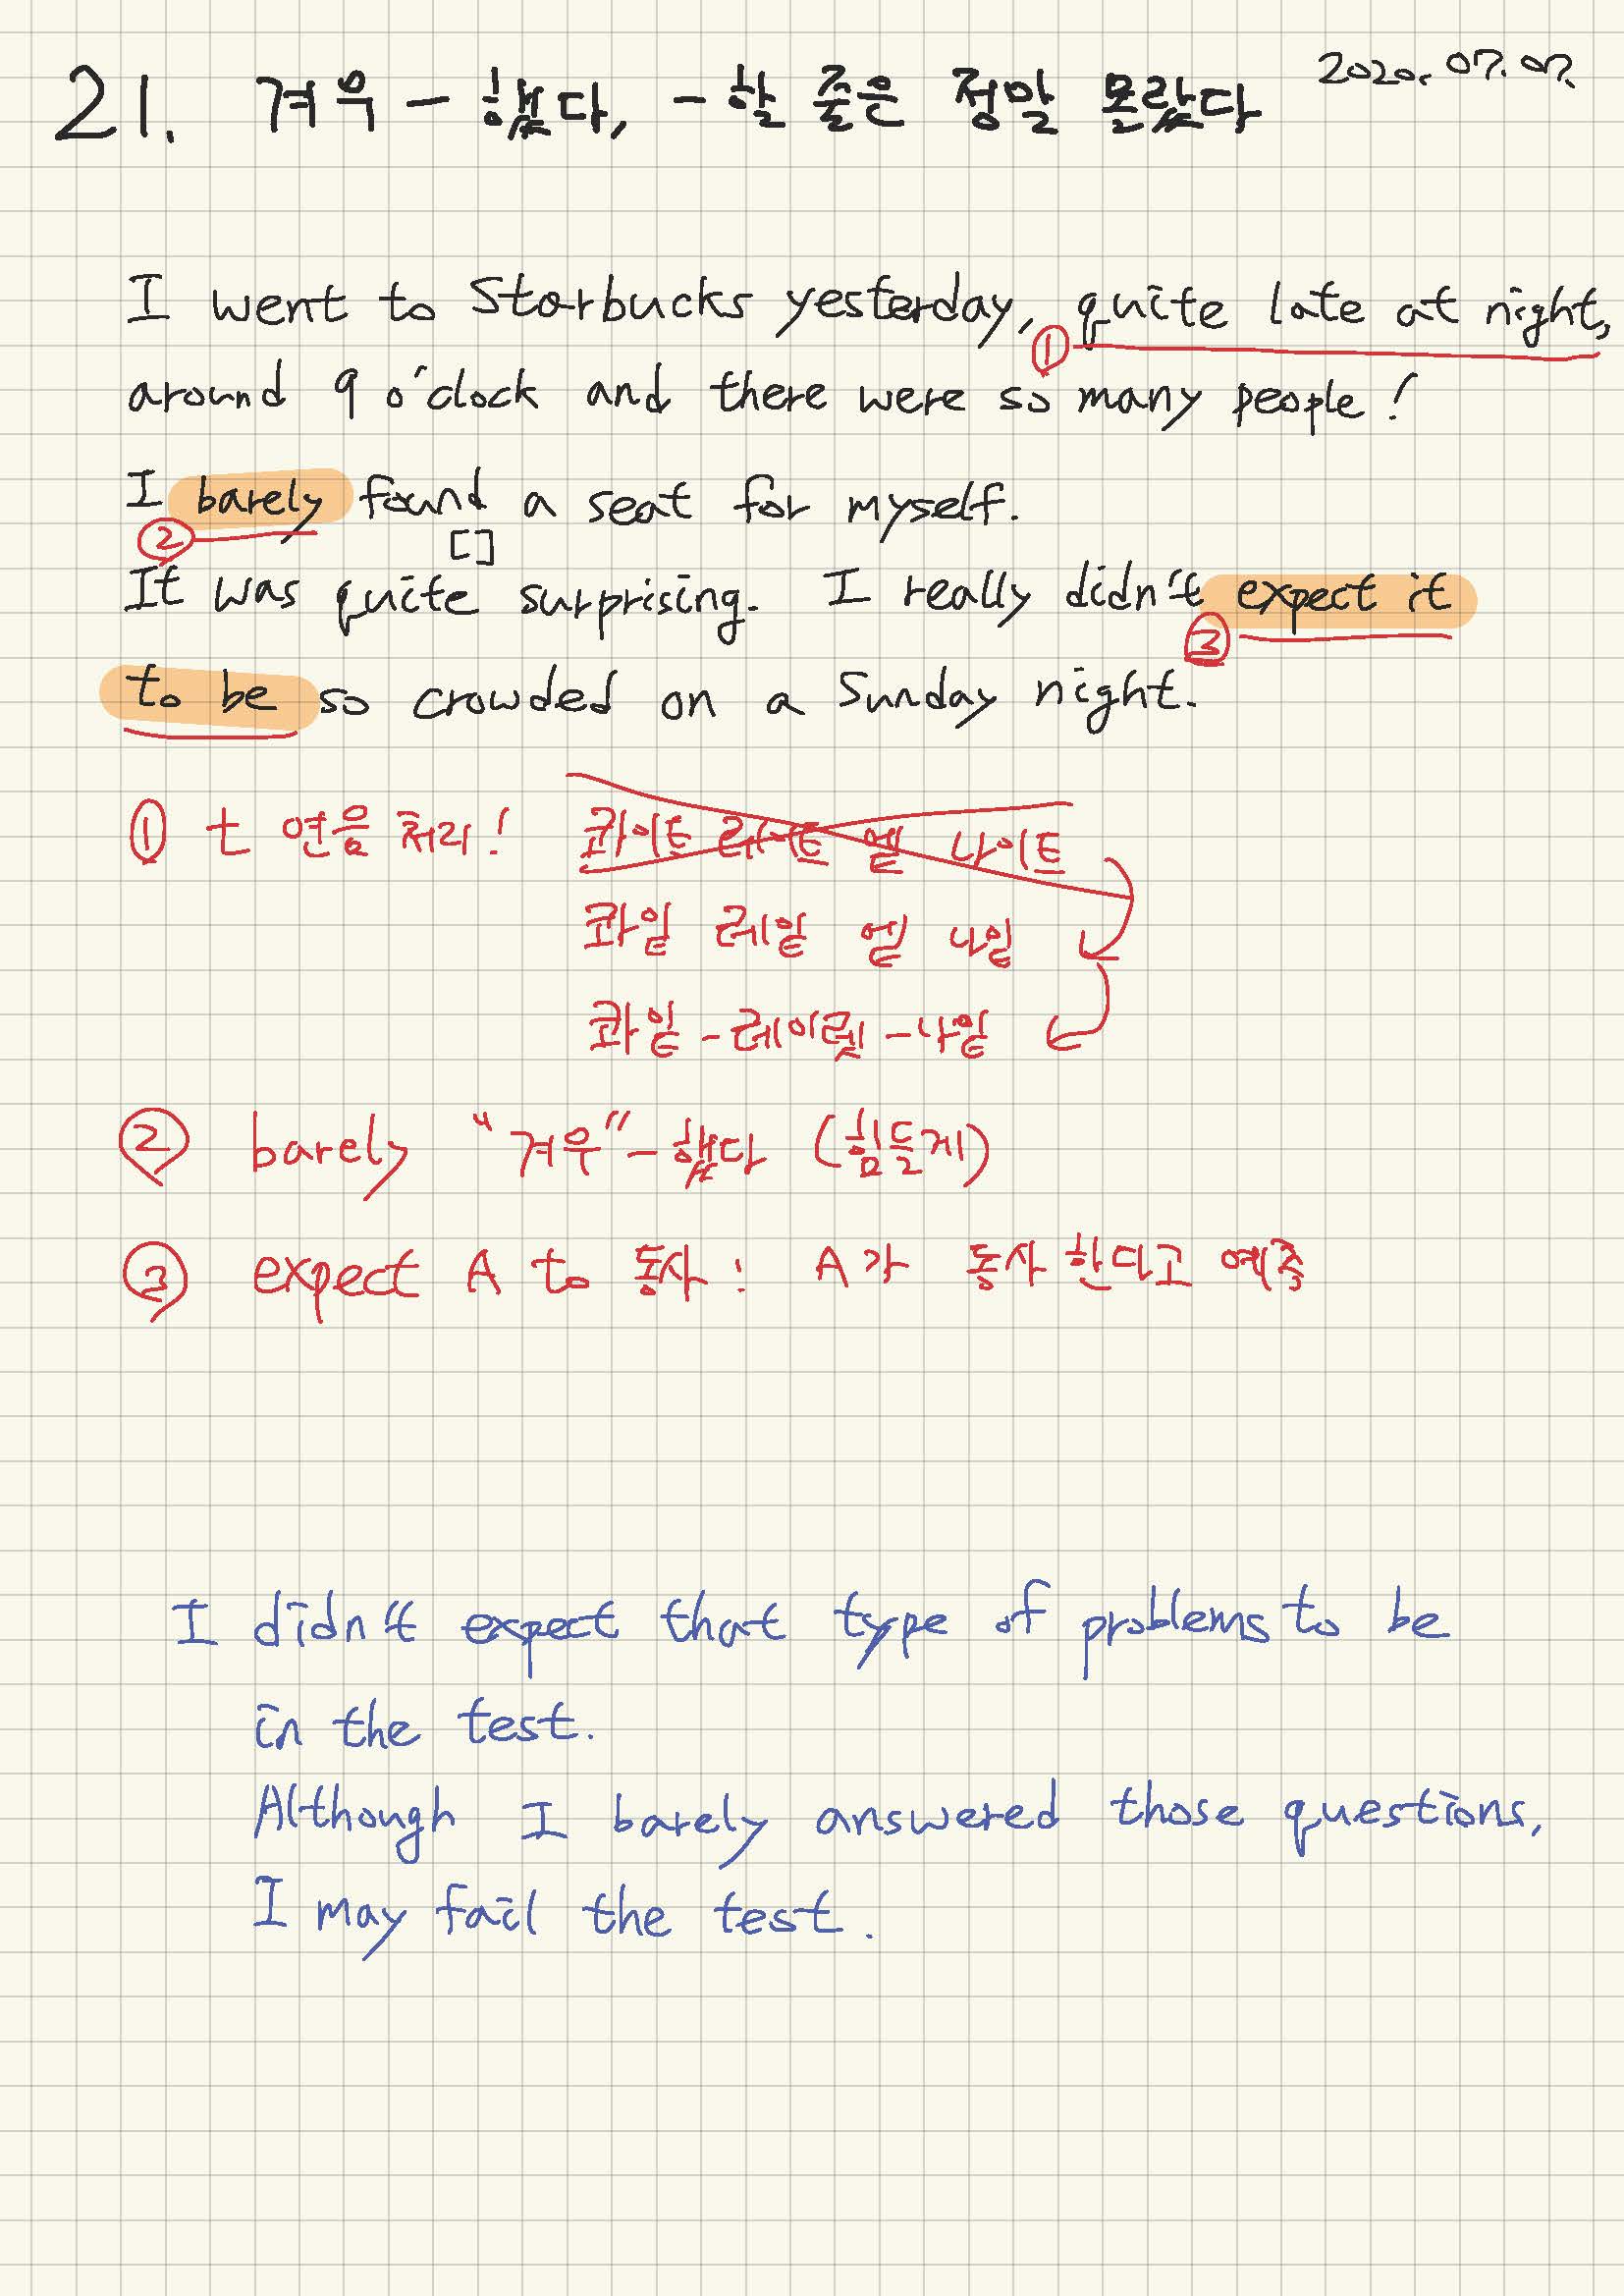 21. 겨우 - 했다, - 할 줄은 정말 몰랐다 2020. 07. 07.
I went to Storbucks yesterday, quite late at night,
①
around 9 o'clock and there were so many people!
I barely found a seat for myself.
② []
It was quite surprising. I really didn't expect it
③
to be so crowded on a Sunday night.
① t 연음 처리! 콰이트 레이트 엩 나이트
콰잍 레잍 엩 나잍
콰잍 - 레이맅 - 나잍
② barely "겨우" - 했다 (힘들게)
③ expect A to 동사 : A가 동사한다고 예측
I didn't expect that type of problems to be
in the test.
Although I barely answered those questions,
I may fail the test.